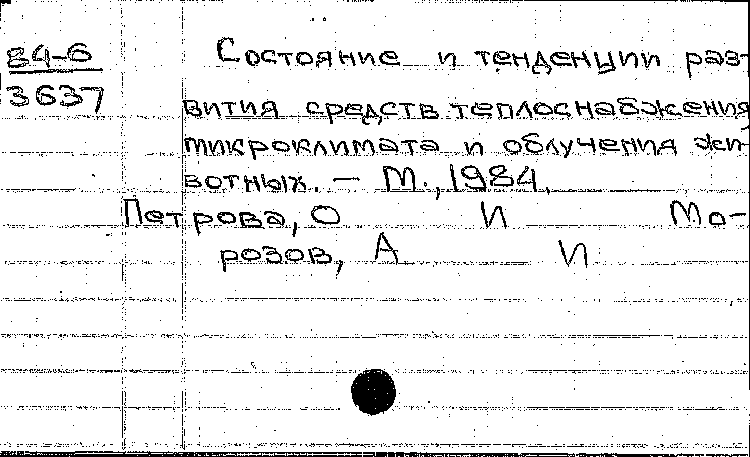 84-6
3637
Состояние и тенденции раз-
вития средств теплоснабжения
микроклимата и облучения жи-
вотных. — М., 1984.
Петрова, О И Мо-
розов, А И